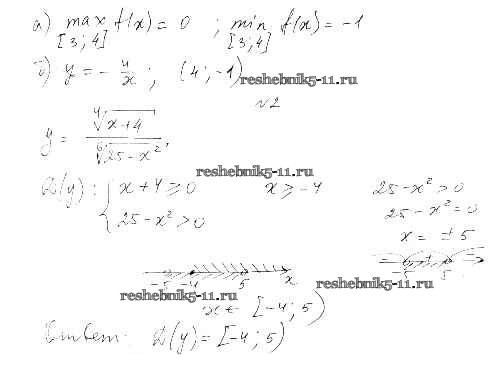 а) max f(x) = 0 ; min f(x) = -1
[3; 4] [3; 4]
б) y = - 4/x ; (4; -1)
reshebnik5-11.ru
№2
y = ⁴√(x+4) / ⁶√(25-x²)
reshebnik5-11.ru
D(y): { x+4 ≥ 0 x ≥ -4 25-x² > 0
25-x² > 0 25-x² = 0
x = ± 5
-5 + 5
-5 -4 5 x
reshebnik5-11.ru reshebnik5-11.ru
x ∈ [-4; 5)
Ответ: D(y) = [-4; 5)